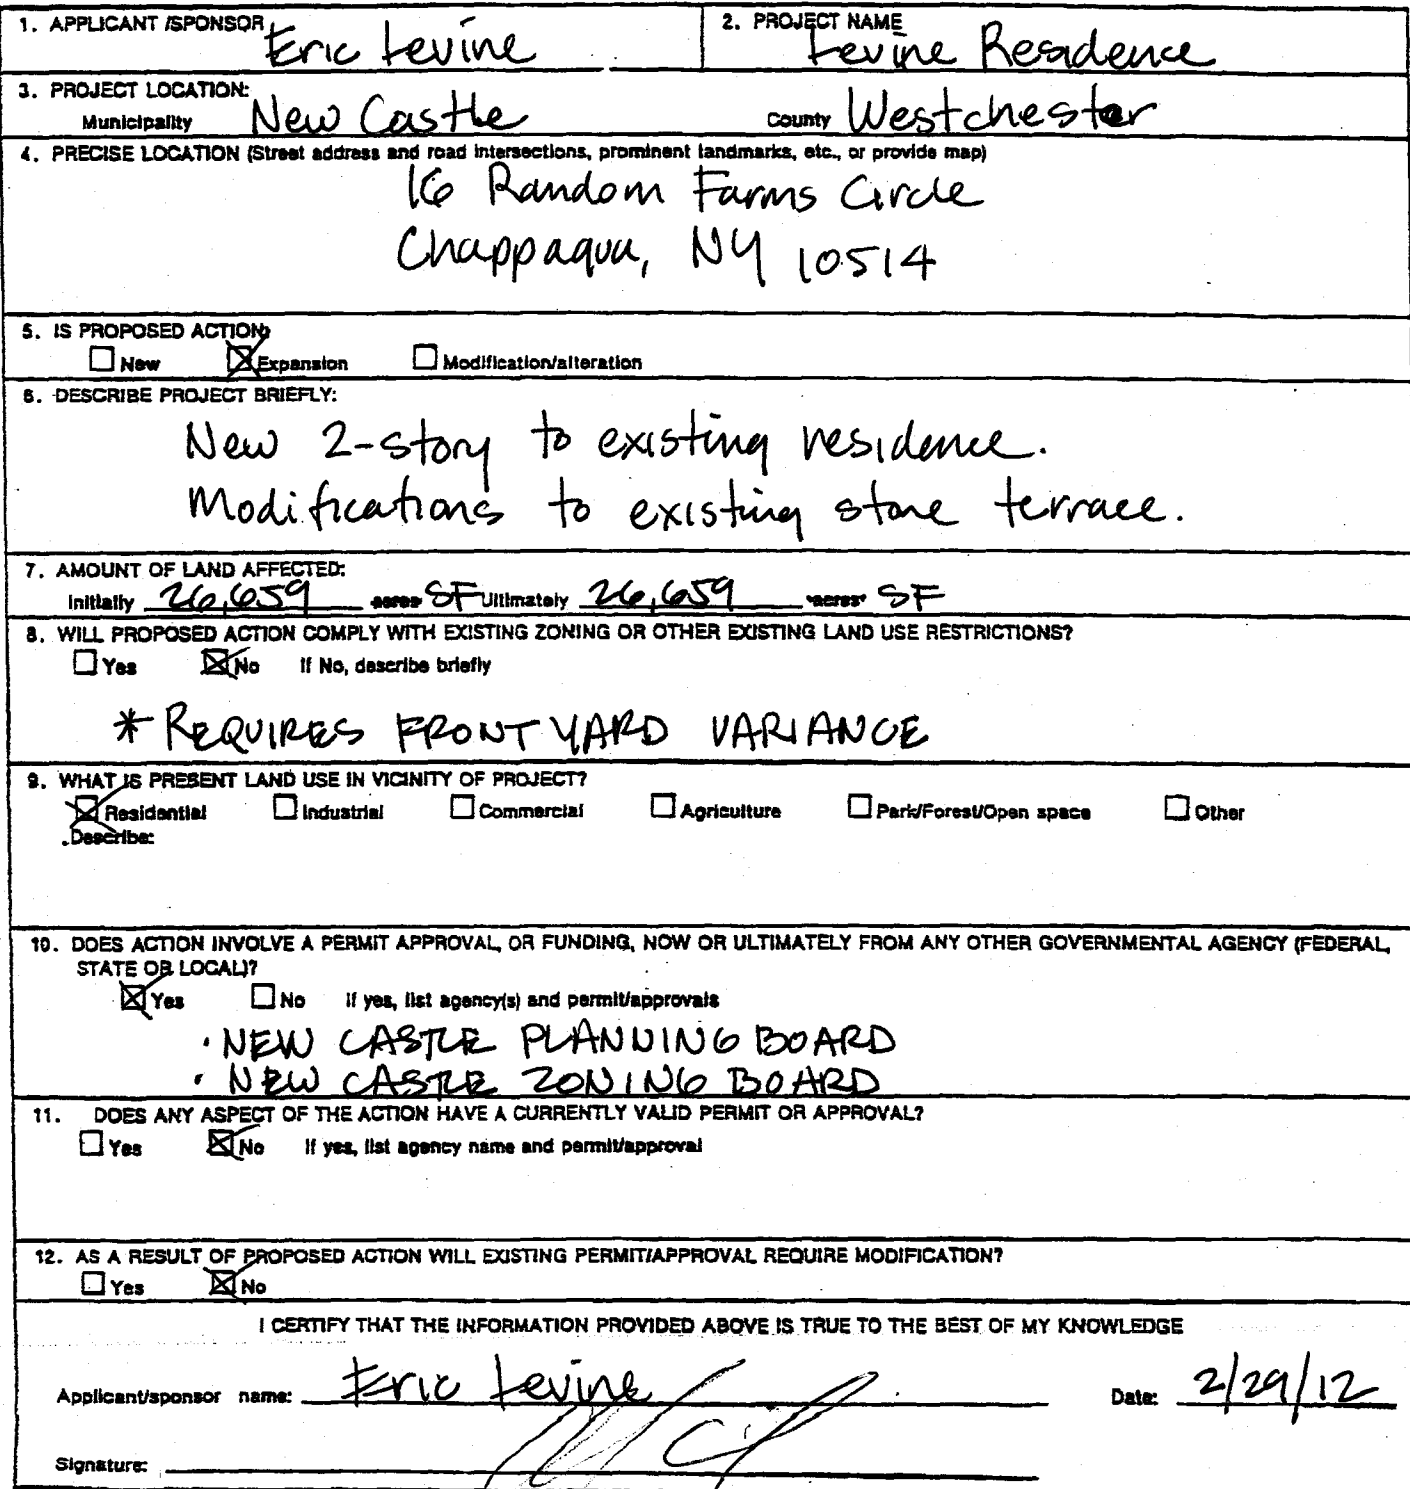 1. APPLICANT /SPONSOR Eric Levine
2. PROJECT NAME Levine Residence
3. PROJECT LOCATION:
Municipality New Castle County Westchester
4. PRECISE LOCATION (Street address and road intersections, prominent landmarks, etc., or provide map)
16 Random Farms Circle
Chappaqua, NY 10514
5. IS PROPOSED ACTION:
New Expansion Modification/alteration
6. DESCRIBE PROJECT BRIEFLY:
New 2-story to existing residence.
Modifications to existing stone terrace.
7. AMOUNT OF LAND AFFECTED:
Initially 26,659 acres SF Ultimately 26,659 acres SF
8. WILL PROPOSED ACTION COMPLY WITH EXISTING ZONING OR OTHER EXISTING LAND USE RESTRICTIONS?
Yes No If No, describe briefly
* REQUIRES FRONT YARD VARIANCE
9. WHAT IS PRESENT LAND USE IN VICINITY OF PROJECT?
Residential Industrial Commercial Agriculture Park/Forest/Open space Other
Describe:
10. DOES ACTION INVOLVE A PERMIT APPROVAL, OR FUNDING, NOW OR ULTIMATELY FROM ANY OTHER GOVERNMENTAL AGENCY (FEDERAL,
STATE OR LOCAL)?
Yes No If yes, list agency(s) and permit/approvals
• NEW CASTLE PLANNING BOARD
• NEW CASTLE ZONING BOARD
11. DOES ANY ASPECT OF THE ACTION HAVE A CURRENTLY VALID PERMIT OR APPROVAL?
Yes No If yes, list agency name and permit/approval
12. AS A RESULT OF PROPOSED ACTION WILL EXISTING PERMIT/APPROVAL REQUIRE MODIFICATION?
Yes No
I CERTIFY THAT THE INFORMATION PROVIDED ABOVE IS TRUE TO THE BEST OF MY KNOWLEDGE
Applicant/sponsor name: Eric Levine Date: 2/29/12
Signature: